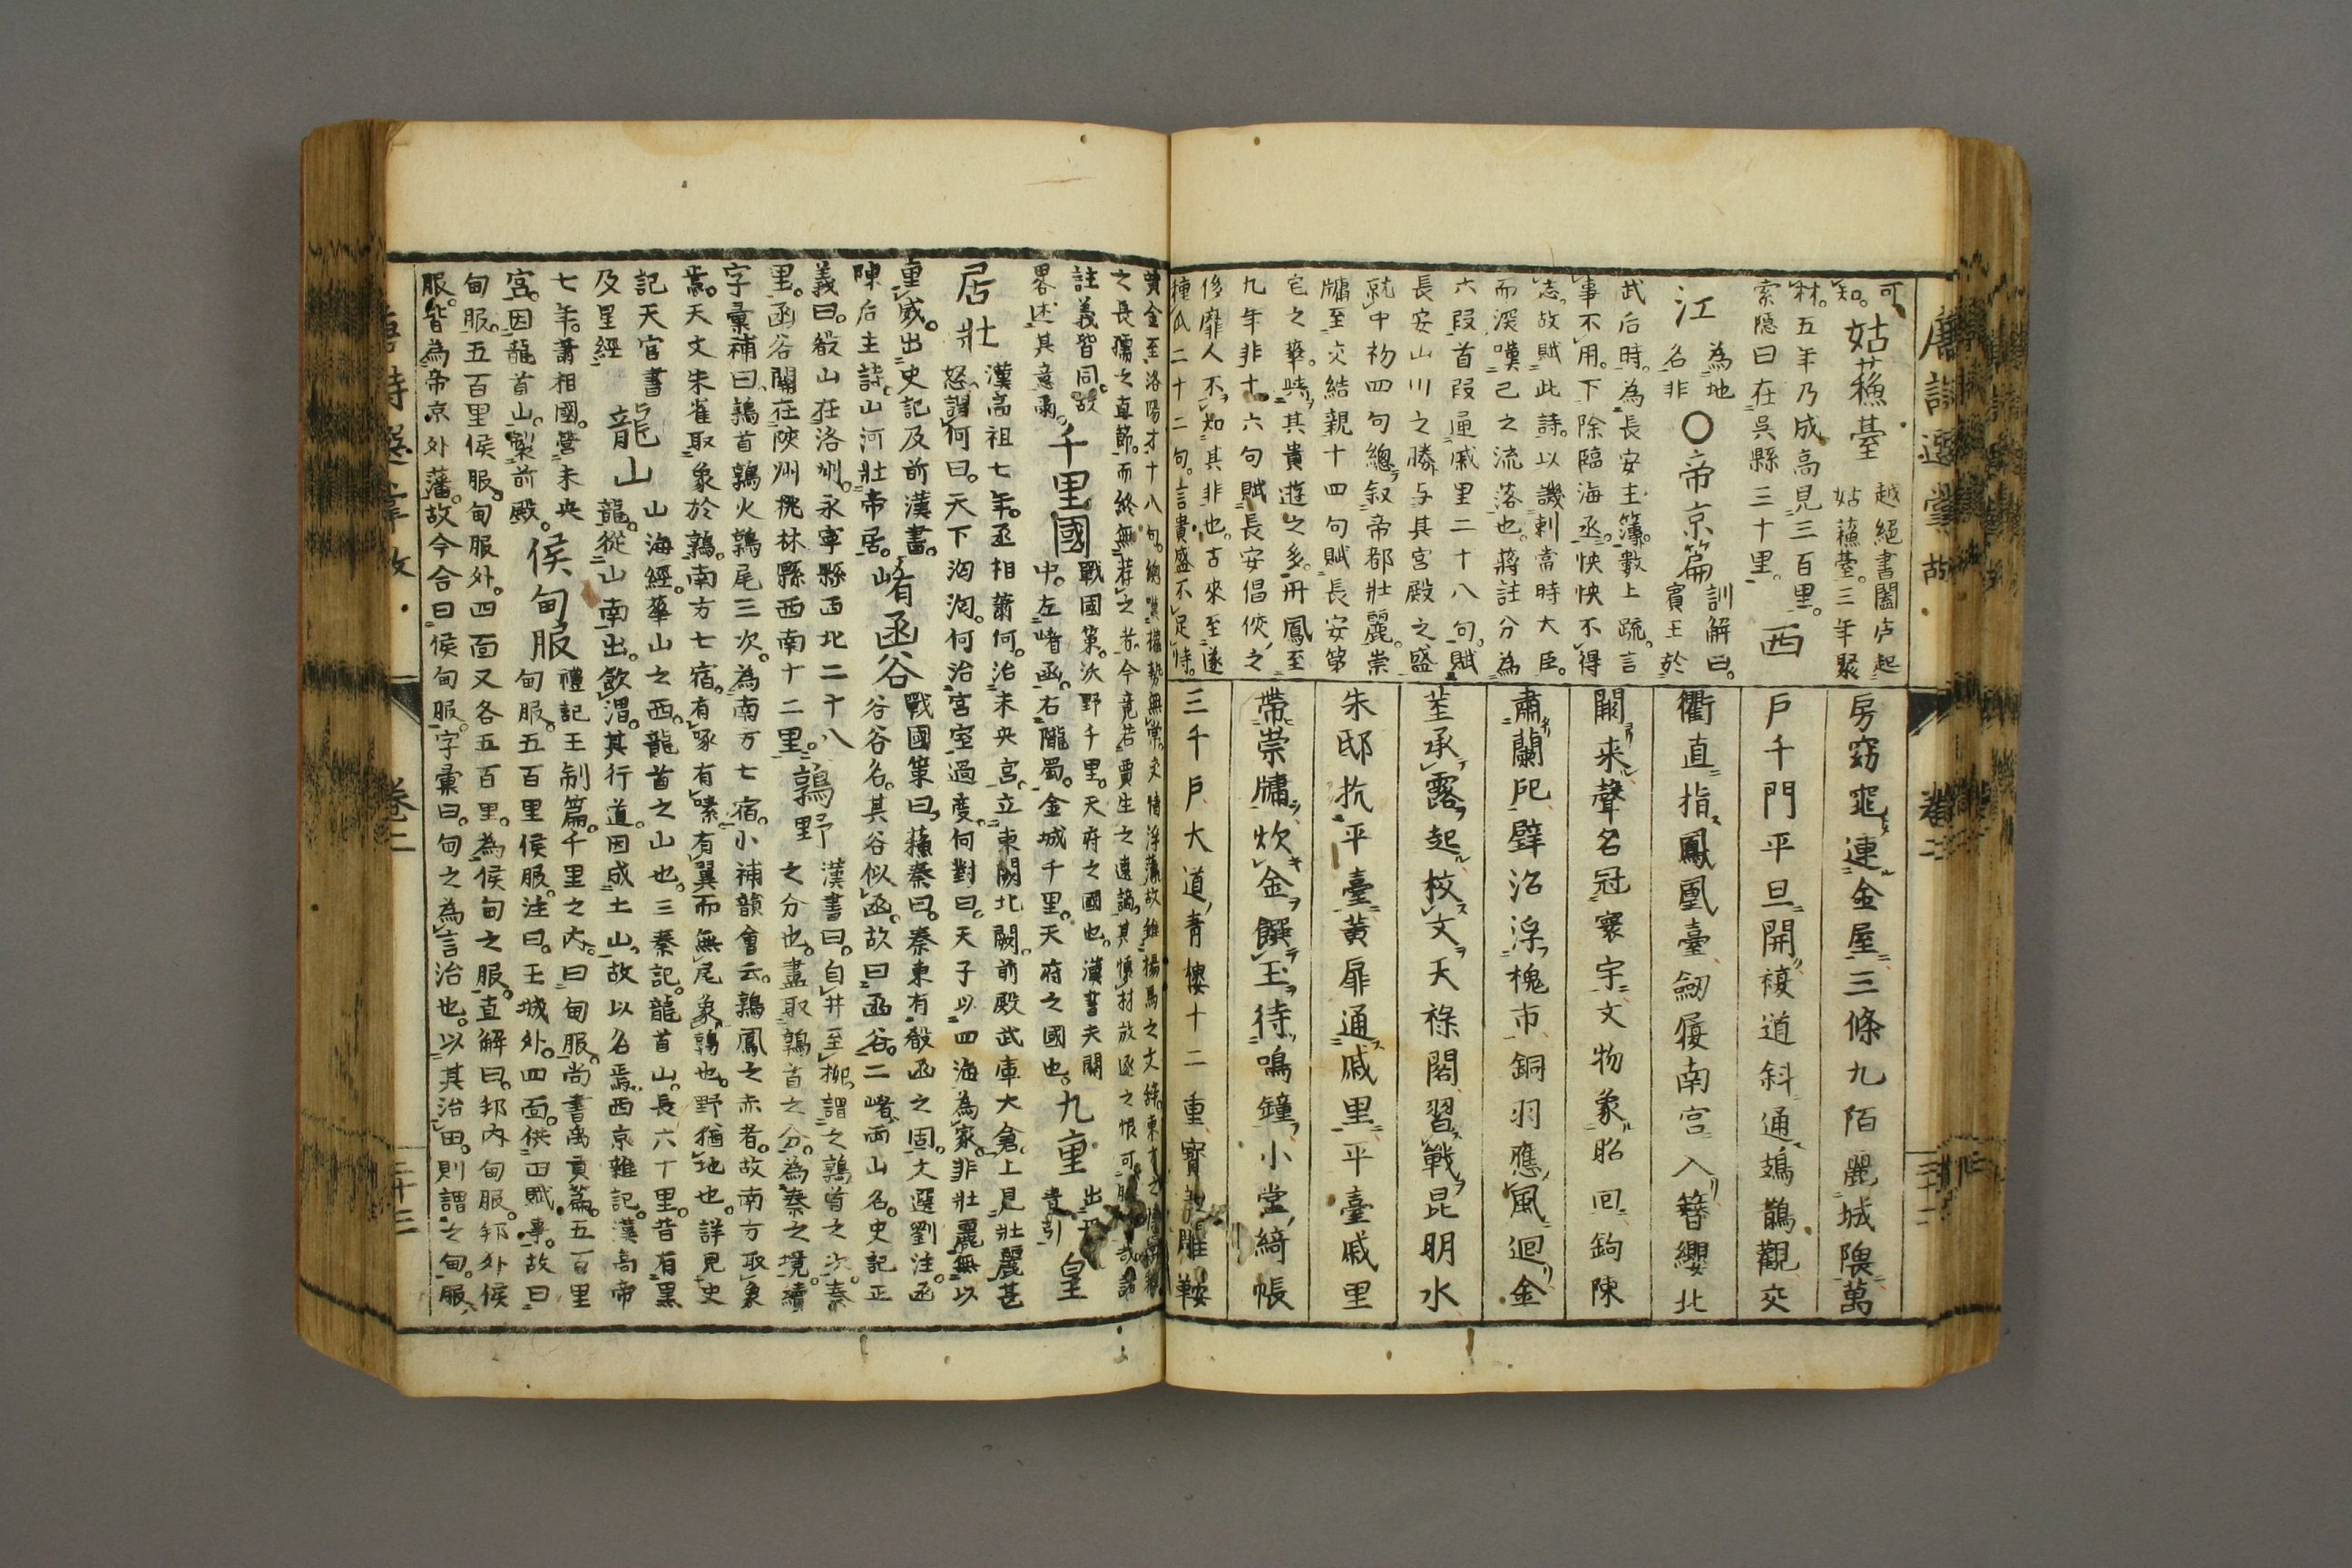 唐詩選掌故 卷二 三十二
可知。姑蘓臺 越絕書闔庐起
姑蘓臺。三年聚
材。五年乃成。高見三百里。
索隱曰在呉縣三十里。 西
江 為地
名非 ○帝京篇 訓解曰。
賓王於
武后時。為長安主簿。數上疏。言
事不用。下除臨海丞。怏怏不得
志。故賦此詩。以譏刺當時大臣。
而深嘆己之流落也。蔣註分為
六叚首叚逓戚里二十八句。賦
長安山川之勝与其宮殿之盛
就中初四句總叙帝都壯麗。崇
牗至交結親十四句賦長安第
宅之華。時其貴遊之多。丹鳳至
九年非十六句賦長安倡俠之
侈靡人不知其非也。古來至遂
種瓜二十二句。言貴盛不足恃。
房窈窕連金屋三條九陌麗城隈萬
戶千門平旦開複道斜通鳷鵲觀交
衢直指鳳凰臺劔履南宮入簪纓北
闕来聲名冠寰宇文物象昭回鉤陳
肅蘭戺璧沼浮槐市銅羽應風迴金
莖承露起校文天祿閣習戰昆明水
朱邸抗平臺黃扉通戚里平臺戚里
帶崇牗炊金饌玉待鳴鐘小堂綺帳
三千戶大道青樓十二重寶盖雕鞍
黃金至洛陽才十八句。
之長孺之直節。而終無荐之者今竟若賈生之遠謫其慎材放逐之恨可
註義皆同。故
畧述其意爾。千里國 戰國策。沃野千里。天府之國也。漢書夫關
中。左崤函。右隴蜀。金城千里。天府之國也。九重 出 皇
居壯 漢高祖七年。丞相蕭何。治未央宮。立東闕北闕。前殿武庫大倉。上見壯麗甚
怒。謂何曰。天下洶洶。何治宮室過度。何對曰。天子以四海為家。非壯麗無以
重威。出史記及前漢書。崤函谷 戰國策曰。蘓秦曰。秦東有殽函之固。文選劉注。函
谷谷名。其谷似函。故曰函谷。二崤兩山名。史記正
陳后主詩。山河壯帝居。
義曰。殽山在洛州。永寧縣西北二十八
里。函谷關在陜州桃林縣西南十二里。鶉野 漢書曰。自井至柳。謂之鶉首之次。秦
之分也。盡取鶉首之分。為秦之境。續
字彙補曰、鶉首鶉火鶉尾三次。為南方七宿。小補韻會云。鶉鳳之赤者。故南方取象
焉。天文朱雀取象於鶉。南方七宿。有喙有嗉有翼而無尾象鶉也。野猶地也。詳見史
記天官書
及星經 龍山 山海經。華山之西。龍首之山也。三秦記。龍首山。長六十里。昔有黒
龍。從山南出。飲渭。其行道。因成土山。故以名焉。西京雜記。漢高帝
七年。蕭相國。營未央
宮。因龍首山。製前殿。侯甸服 禮記王制篇。千里之內。曰甸服。尚書禹貢篇。五百里
甸服。五百里侯服。注曰。王城外。四面。供田賦事。故曰
甸服。五百里侯服。甸服外。四面又各五百里。為侯甸之服。直解曰。邦內甸服。邦外侯
服。皆為帝京外藩。故今合曰侯甸服。字彙曰。甸之為言治也。以其治田。則謂之甸服
唐詩選掌故 卷二 三十三